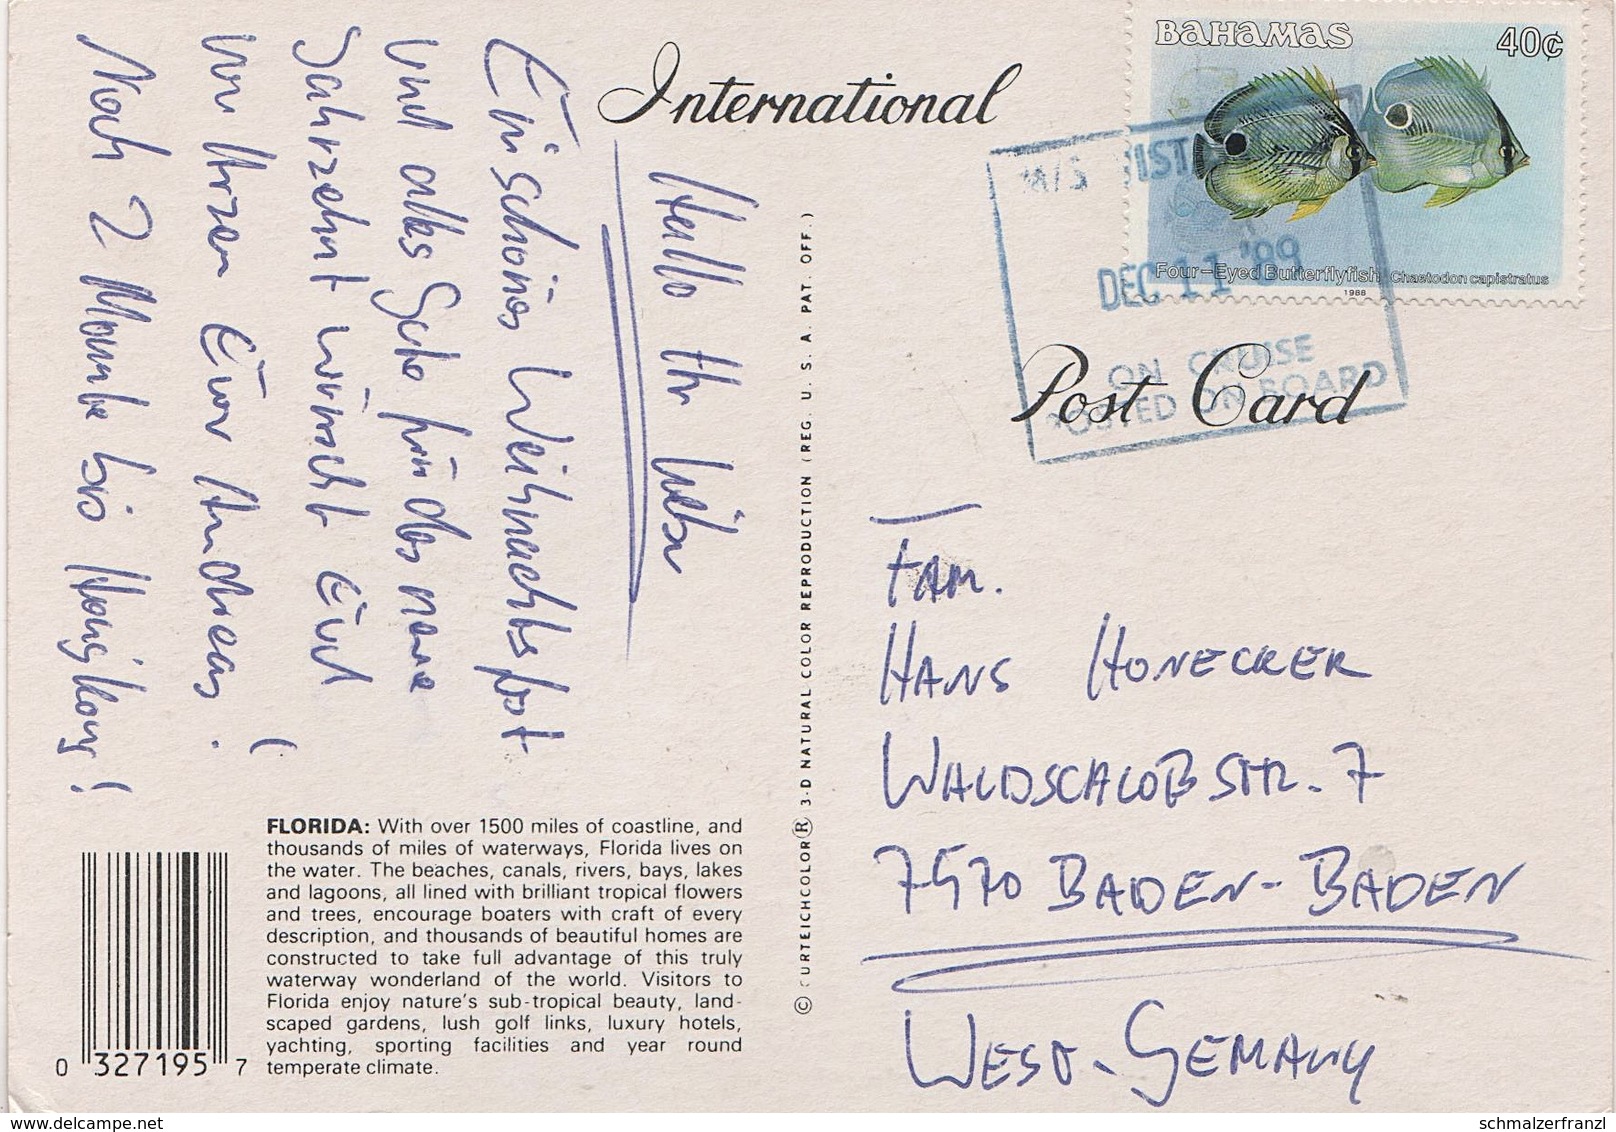 BAHAMAS 40¢
Four-Eyed Butterflyfish Chaetodon capistratus
1988
M/S VISTA
DEC 11 '89
ON CRUISE
POSTED ON BOARD
International
Post Card
Hallo Ihr Lieben
Ein schönes Weihnachtsfest
und alles Gute für das neue
Jahrzehnt wünscht Euch
von Herzen Euer Andreas!
Noch 2 Monate bis Hongkong!
FAM.
HANS HONECKER
WALDSCHLOßSTR. 7
7570 BADEN-BADEN
WEST-GEMANY
© CURTEICHCOLOR® 3-D NATURAL COLOR REPRODUCTION (REG. U. S. A. PAT. OFF.)
FLORIDA: With over 1500 miles of coastline, and
thousands of miles of waterways, Florida lives on
the water. The beaches, canals, rivers, bays, lakes
and lagoons, all lined with brilliant tropical flowers
and trees, encourage boaters with craft of every
description, and thousands of beautiful homes are
constructed to take full advantage of this truly
waterway wonderland of the world. Visitors to
Florida enjoy nature's sub-tropical beauty, land-
scaped gardens, lush golf links, luxury hotels,
yachting, sporting facilities and year round
temperate climate.
0 327195 7
www.delcampe.net
schmalzerfranzl